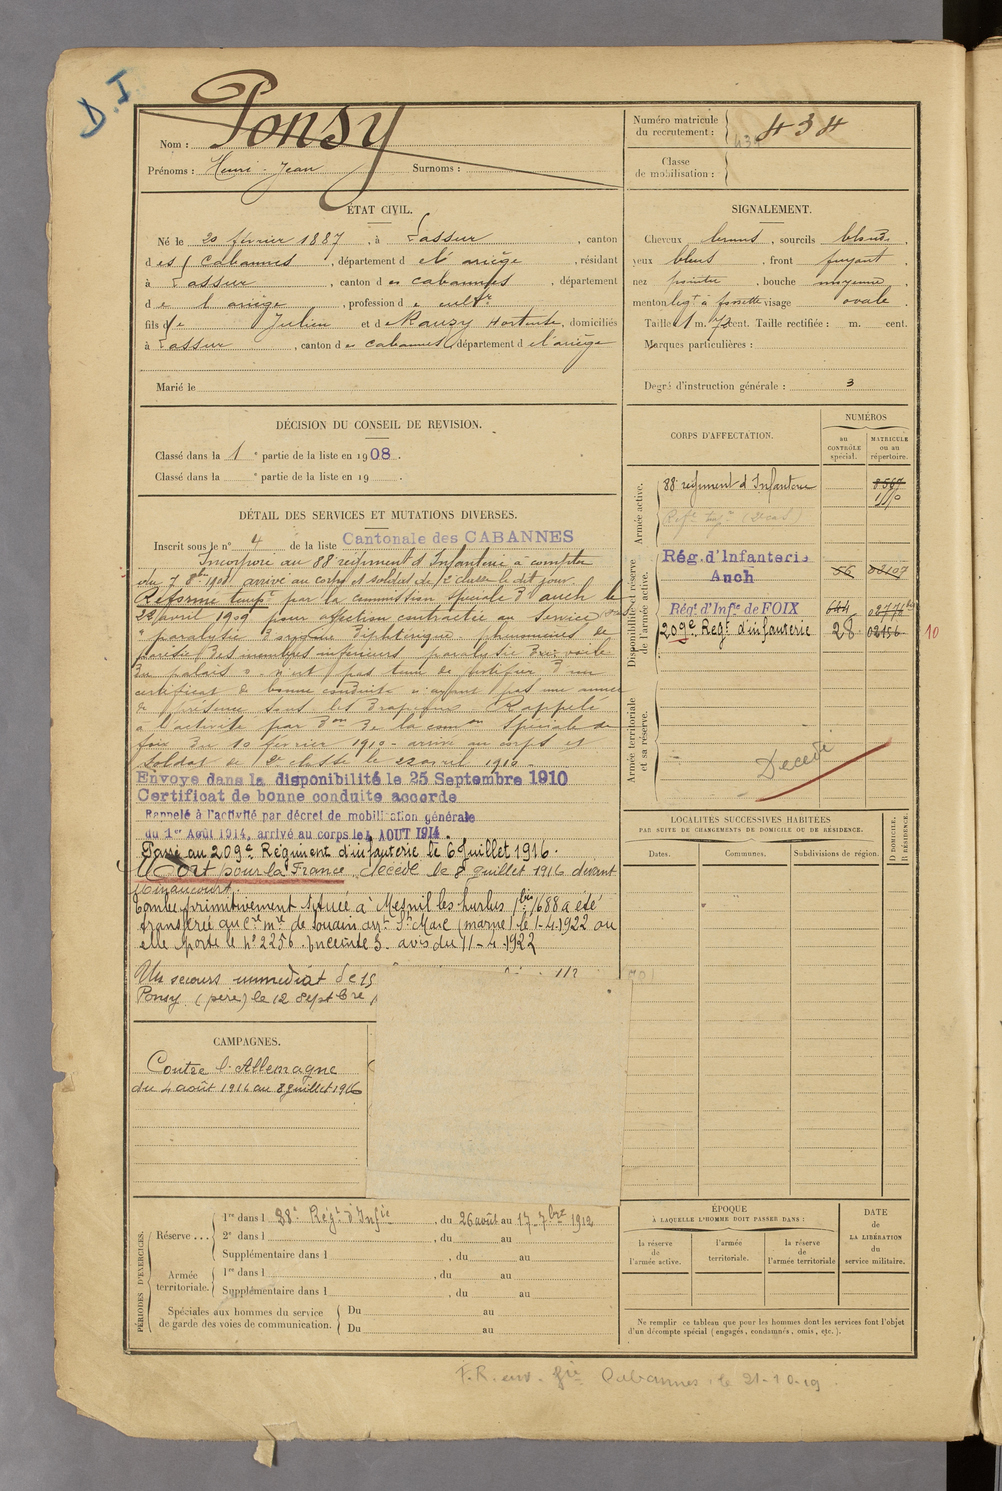 D. I
Nom : Ponsy
Prénoms : Henri Jean Surnoms :
Numéro matricule du recrutement : 434
434
Classe de mobilisation :
ÉTAT CIVIL.
Né le 20 février 1887, à Lassur, canton
des Cabannes, département de l'ariège, résidant
à Lassur, canton des cabannes, département
de l'ariège, profession de cultr
fils de Julien et de Rauzy Hortense, domiciliés
à Lassur, canton des cabannes, département de l'ariège
Marié le
SIGNALEMENT.
Cheveux bruns, sourcils blonds.
yeux bleus, front fuyant.
nez pointu, bouche moyenne
menton légt à fossette visage ovale.
Taille 1 m. 72 cent. Taille rectifiée : m. cent.
Marques particulières :
Degré d'instruction générale : 3
DÉCISION DU CONSEIL DE REVISION.
Classé dans la 1e partie de la liste en 1908.
Classé dans la e partie de la liste en 19 .
DÉTAIL DES SERVICES ET MUTATIONS DIVERSES.
Inscrit sous le n° 4 de la liste Cantonale des CABANNES
Incorporé au 88 régiment d'Infanterie à compter
du 7 8bre 1908 arrivé au corps et soldat de 2e classe le dit jour.
Réformé tempre par la commission spéciale d'auch le
22 avril 1909 pour affection contractée au service
" paralysie d'origine diphtérique phénomènes de
parésie des membres inférieurs paralysie du voile
du palais ". n'est pas tenu de justifier d'un
certificat de bonne conduite n'ayant pas une année
de présence sous les drapeaux. Rappelé
à l'activité par don de la comon spéciale de
foix du 10 février 1910 - arrivé au corps et
soldat de 2e classe le 22 avril 1910 -
Envoyé dans la disponibilité le 25 Septembre 1910
Certificat de bonne conduite accordé
Rappelé à l'activité par décret de mobilisation générale
du 1er Août 1914, arrivé au corps le 4 AOUT 1914.
Passé au 209e Régiment d'infanterie le 6 Juillet 1916.
Mort pour la France, décédé le 8 juillet 1916 devant
Tombe primitivement située à Mesnil les hurlus 1688 a été
transférée au Cre mre de souain St Marc (marne) le 1-4-1922 ou
elle porte le n° 2256. Enceinte 5. avis du 11-4-1922
Un secours immédiat de 15
Ponsy (père) le 12 Septbre
CORPS D'AFFECTATION.
NUMÉROS
au CONTRÔLE spécial.
MATRICULE ou au répertoire.
Armée active.
88 régiment d'Infanterie 8567
1110
Disponibilité et réserve de l'armée active.
Rég. d'Infanterie
Auch 56 08107
Régt d'Infie de FOIX 644 02776bis
209e Regt d'infanterie 28 02156 10
Armée territoriale et sa réserve.
Decedé
LOCALITÉS SUCCESSIVES HABITÉES
PAR SUITE DE CHANGEMENTS DE DOMICILE OU DE RÉSIDENCE.
Dates. Communes. Subdivisions de région.
D DOMICILE. R RÉSIDENCE.
CAMPAGNES.
Contre l'Allemagne
du 4 août 1914 au 8 juillet 1916
PÉRIODES D'EXERCICES.
Réserve ...
1re dans l 88e Régt d'Infie, du 26 août au 17-7bre 1912
2e dans l , du au
Supplémentaire dans l , du au
Armée territoriale.
1re dans l , du au
Supplémentaire dans l , du au
Spéciales aux hommes du service de garde des voies de communication.
Du au
Du au
ÉPOQUE
À LAQUELLE L'HOMME DOIT PASSER DANS :
la réserve de l'armée active.
l'armée territoriale.
la réserve de l'armée territoriale
DATE de LA LIBÉRATION du service militaire.
Ne remplir ce tableau que pour les hommes dont les services font l'objet
d'un décompte spécial (engagés, condamnés, omis, etc.).
F.R. env. gie Cabannes le 21-10-19